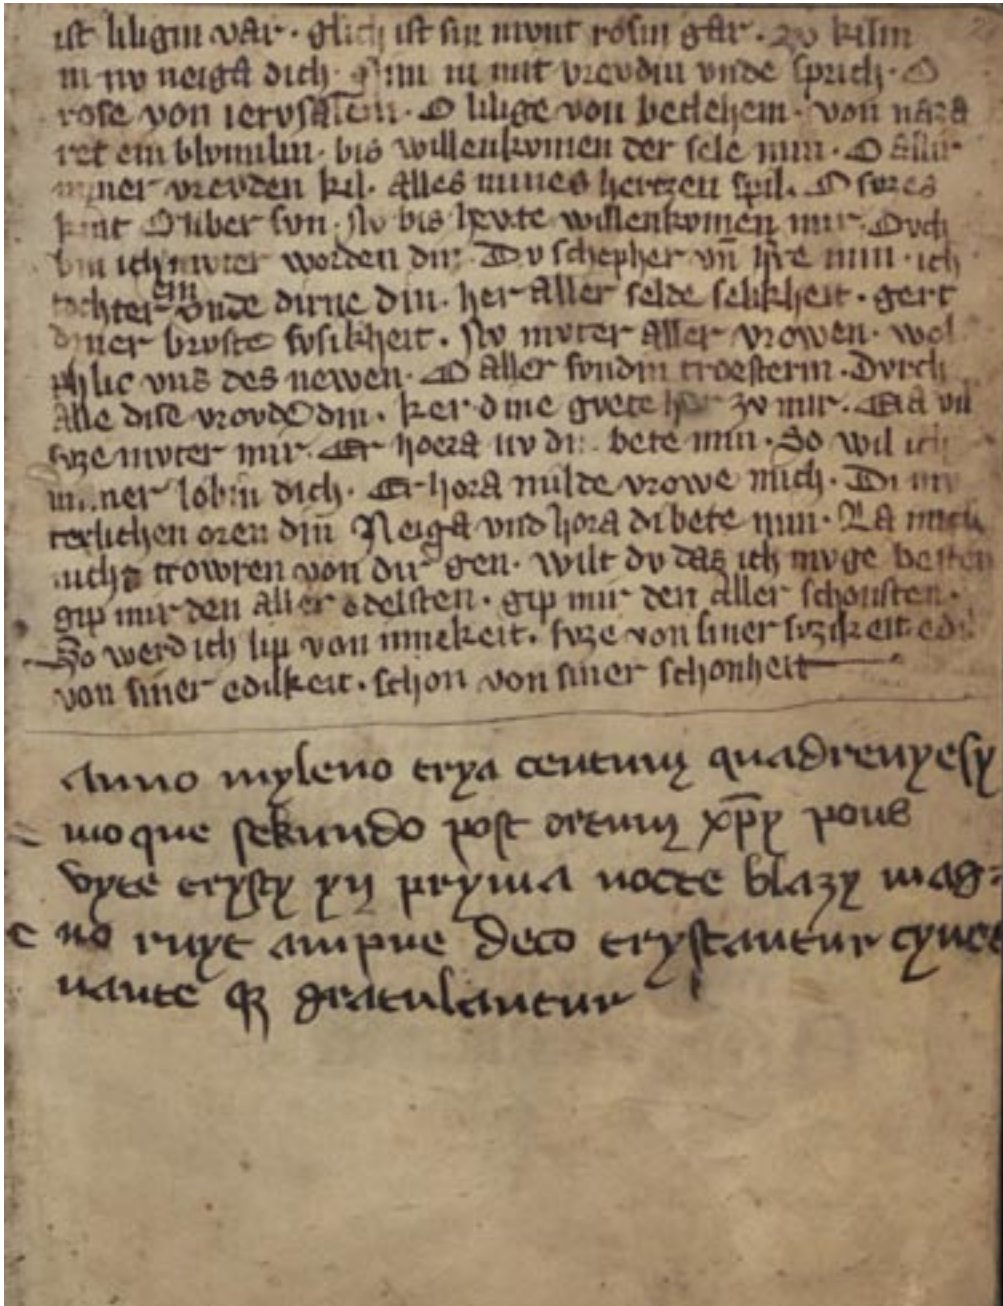 ist liligin var · glich ist sin mvnt rosin gar · zv
in nv neiga dich · nim in mit vrevdin vnde sprich · O
rose von iervsalem · O lilige von betlehem · von naza
ret ein blvmilin · bis willenkvmen der sele min · O allir
miner vrevden spil · alles mines hertzen spil · O svzes
kint O liber svn · Nv bis hevte willenkvmen mir · Dvch
bin ich mvter worden din · Dv schepher vn̄ min · ich
tochter ein vnde dirne din · her aller selde selikheit · gert
diner brvste svsikheit · Nv mvter aller vrowen · wol
vns des newen · O aller svndin troesterin · Dvrch
Alle dise vrovde din · ker dine gvete her zv mir · Eia vil
svze mvter mir · Er hoera nv di bete min · So wil ich
immer lobin dich · Er hora milde vrowe mich · Di mv
terlichen oren din Neiga vnd hora di bete min · La mich
nicht trowren von dir gen · wilt dv das ich mvge besten
gip mir den aller edelsten · gip mir den aller schonsten ·
So werd ich lip von innekeit · svze von siner svzikeit edil
von siner edilkeit · schon von siner schonheit
Anno myleno trya centum quadrenyesy
mo que sekundo post ortum xp̄y pons
vyte trysty yn pryma nocte blazy mag
no ruyt ampne deco trystantur cynct
nante qz gratulantur